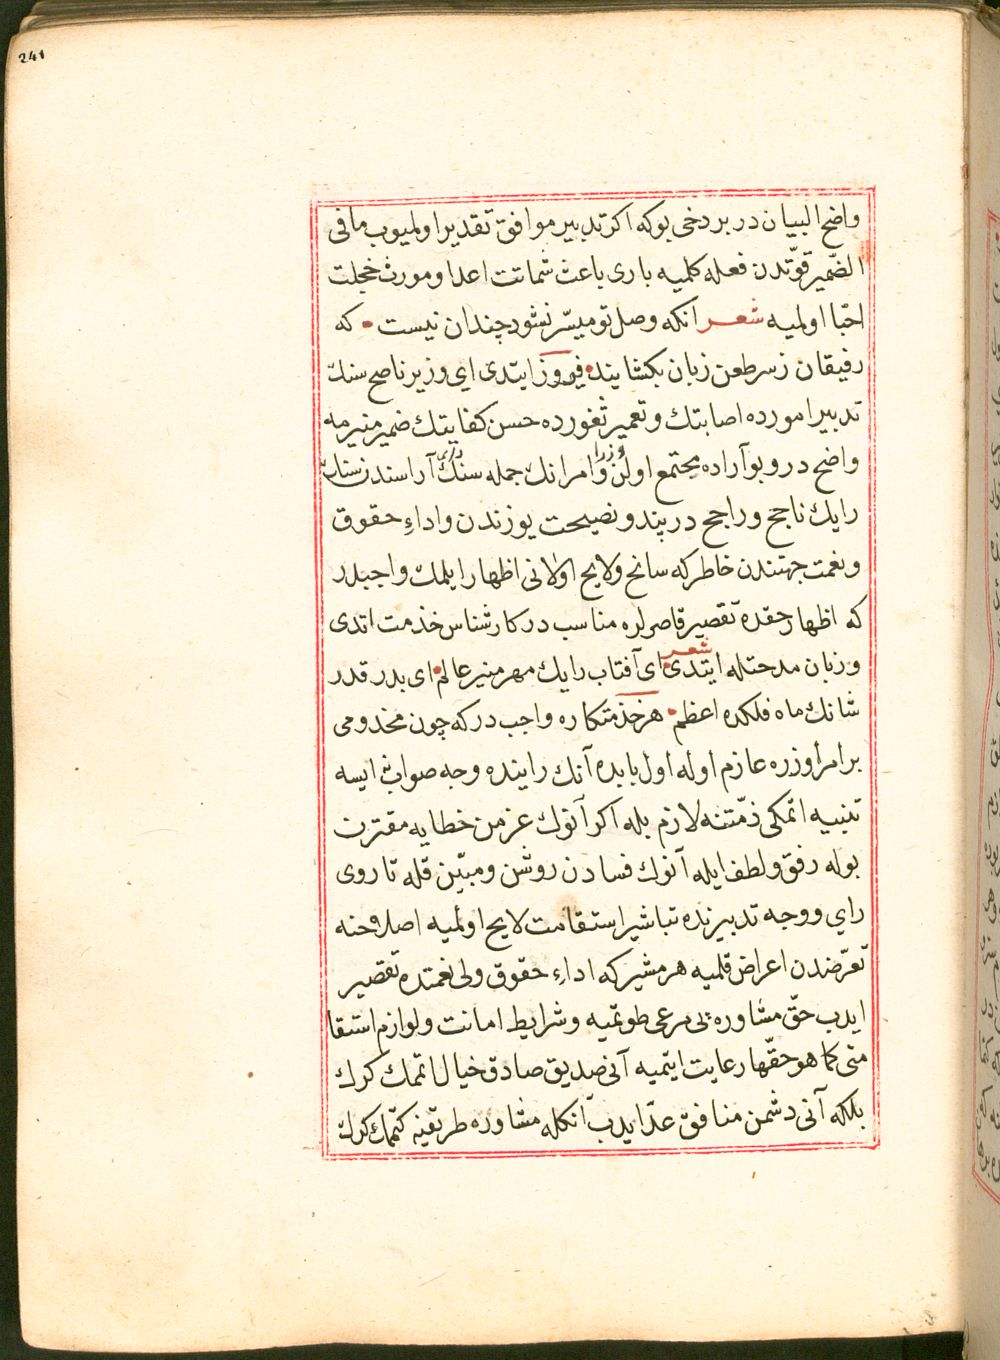 241
واضح البیان در بر دخی بوکه اکر تدبیر موافق تقدیر اولمیوب ما فی
الضّمیر قوّتدن فعله کلمیه باری باعث شماتت اعدا و مورث خجلت
احبّا اولمیه شعر انکه وصل تو میسّر نشود چندان نیست که
رفیقان ز سر طعن زبان بکشایند فیروز ایتدی ای وزیر ناصح سنك
تدبیر امورده اصابتك و تعمیر ثغورده حسن کفایتك ضمیر منیرمه
واضح در و بو آراده مجتمع اولن وزرا و امرانك جمله سنك آراسندن سنك
رایك ناجح و راجح در پند و نصیحت یوزندن و اداء حقوق
و نعمت جهتندن خاطرکه سانح و لایح اولانی اظهار ایلمك واجبدر
که اظهار حقده تقصیر قاصرلره مناسب در کارشناس خذمت اتدی
و زبان مدحتله ایتدی شعر ای آفتاب رایك مهر منیر عالم ای بدر قدر
شانك ماه فلکده اعظم هر خذمتکاره واجب در که چون مخدومی
بر امر اوزره عازم اوله اول بابده آنك راینده وجه صواب ایسه
تنبیه اتمکی ذمّتنه لازم بله اکر آنوك عزمن خطایه مقترن
بوله رفق و لطف ایله آنوك فسادن روشن و مبیّن قله تا روی
رای و وجه تدبیرنده تباشیر استقامت لایح اولمیه اصلاحنه
تعرّضدن اعراض قلمیه هر مشیر که اداء حقوق ولی نعمتده تقصیر
ایدب حقّ مشاوره یی مرعی طوتمیه و شرایط امانت و لوازم استقا
متی کما هو حقّها رعایت ایتمیه آنی صدیق صادق خیال اتمك کرك
بلکه آنی دشمن منافق عدّ ایدب آنکله مشاوره طریقنه کتمك کرك